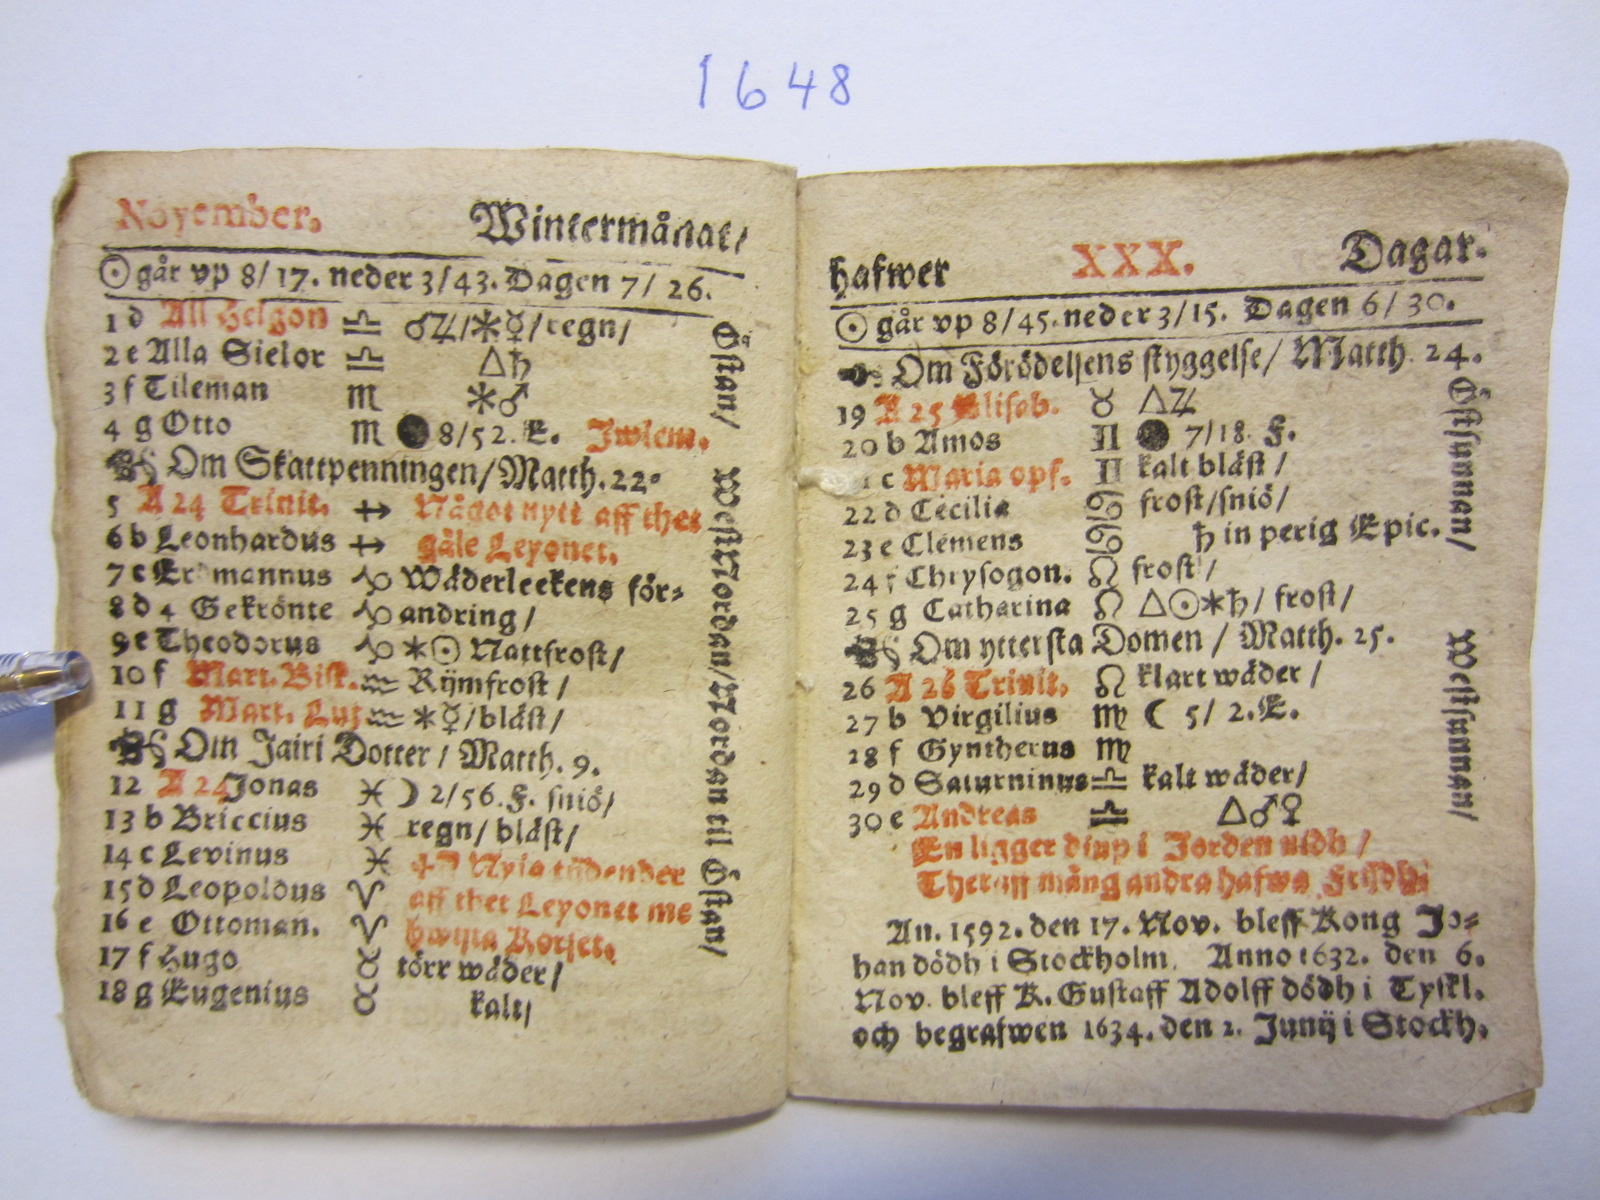 1648
November. Wintermånat/
☉ går vp 8/17. neder 3/43. Dagen 7/ 26.
1 d All Helgon ♎ ♂♃/⚹☿/regn/
2 e Alla Sielor ♎ △♄
3 f Tileman ♏ ⚹♂
4 g Otto ♏ ● 8/52. E. Jwlem.
Om Skattpenningen/Matth. 22.
5 A 24 Trinit. ♐ Något nytt aff thet
6 b Leonhardus ♐ gåle Leyonet.
7 c Erdmannus ♑ Wäderleekens för-
8 d 4 Gekrönte ♑ andring/
9 e Theodorus ♑ ⚹☉ Nattfrost/
10 f Mart. Bisk. ♒ Rijmfrost/
11 g Mart. Lut ♒ ⚹☿/bläst/
Om Jairi Dotter/ Matth. 9.
12 A 24 Jonas ♓ ☽ 2/56. F. sniö/
13 b Briccius ♓ regn/ bläst/
14 c Levinus ♓ Nyia tijdender
15 d Leopoldus ♈ aff thet Leyonet me
16 e Ottoman. ♈ hwijta Korset.
17 f Hugo ♉ törr wäder/
18 g Eugenius ♉ kalt/
Östan/ WestNordan/Nordan til Östan/
hafwer XXX. Dagar.
☉ går vp 8/45. neder 3/15. Dagen 6/ 30.
Om Förödelsens styggelse/ Matth. 24.
19 A 25 Elisab. ♉ △♃
20 b Amos ♊ ● 7/18. F.
c Maria opf. ♊ kalt bläst/
22 d Cecilia ♋ frost/sniö/
23 e Clemens ♋ ♄ in perig Epic.
24 f Chrysogon. ♌ frost/
25 g Catharina ♌ △☉⚹♄/ frost/
Om yttersta Domen/ Matth. 25.
26 A 26 Trinit. ♌ klart wäder/
27 b Virgilius ♍ ☾ 5/ 2. E.
28 f Gyntherus ♍
29 d Saturninus ♎ kalt wäder/
30 e Andreas ♎ △♂♀
En ligger diup i Jorden nidh/
Ther aff mång andra hafwa Fridh
An. 1592. den 17. Nov. bleff Kong Jo-
han dödh i Stockholm. Anno 1632. den 6.
Nov. bleff K. Gustaff Adolff dödh i Tyskl.
och begrafwen 1634. den 2. Junij i Stockh.
Östsunnan/ Westsunnan/